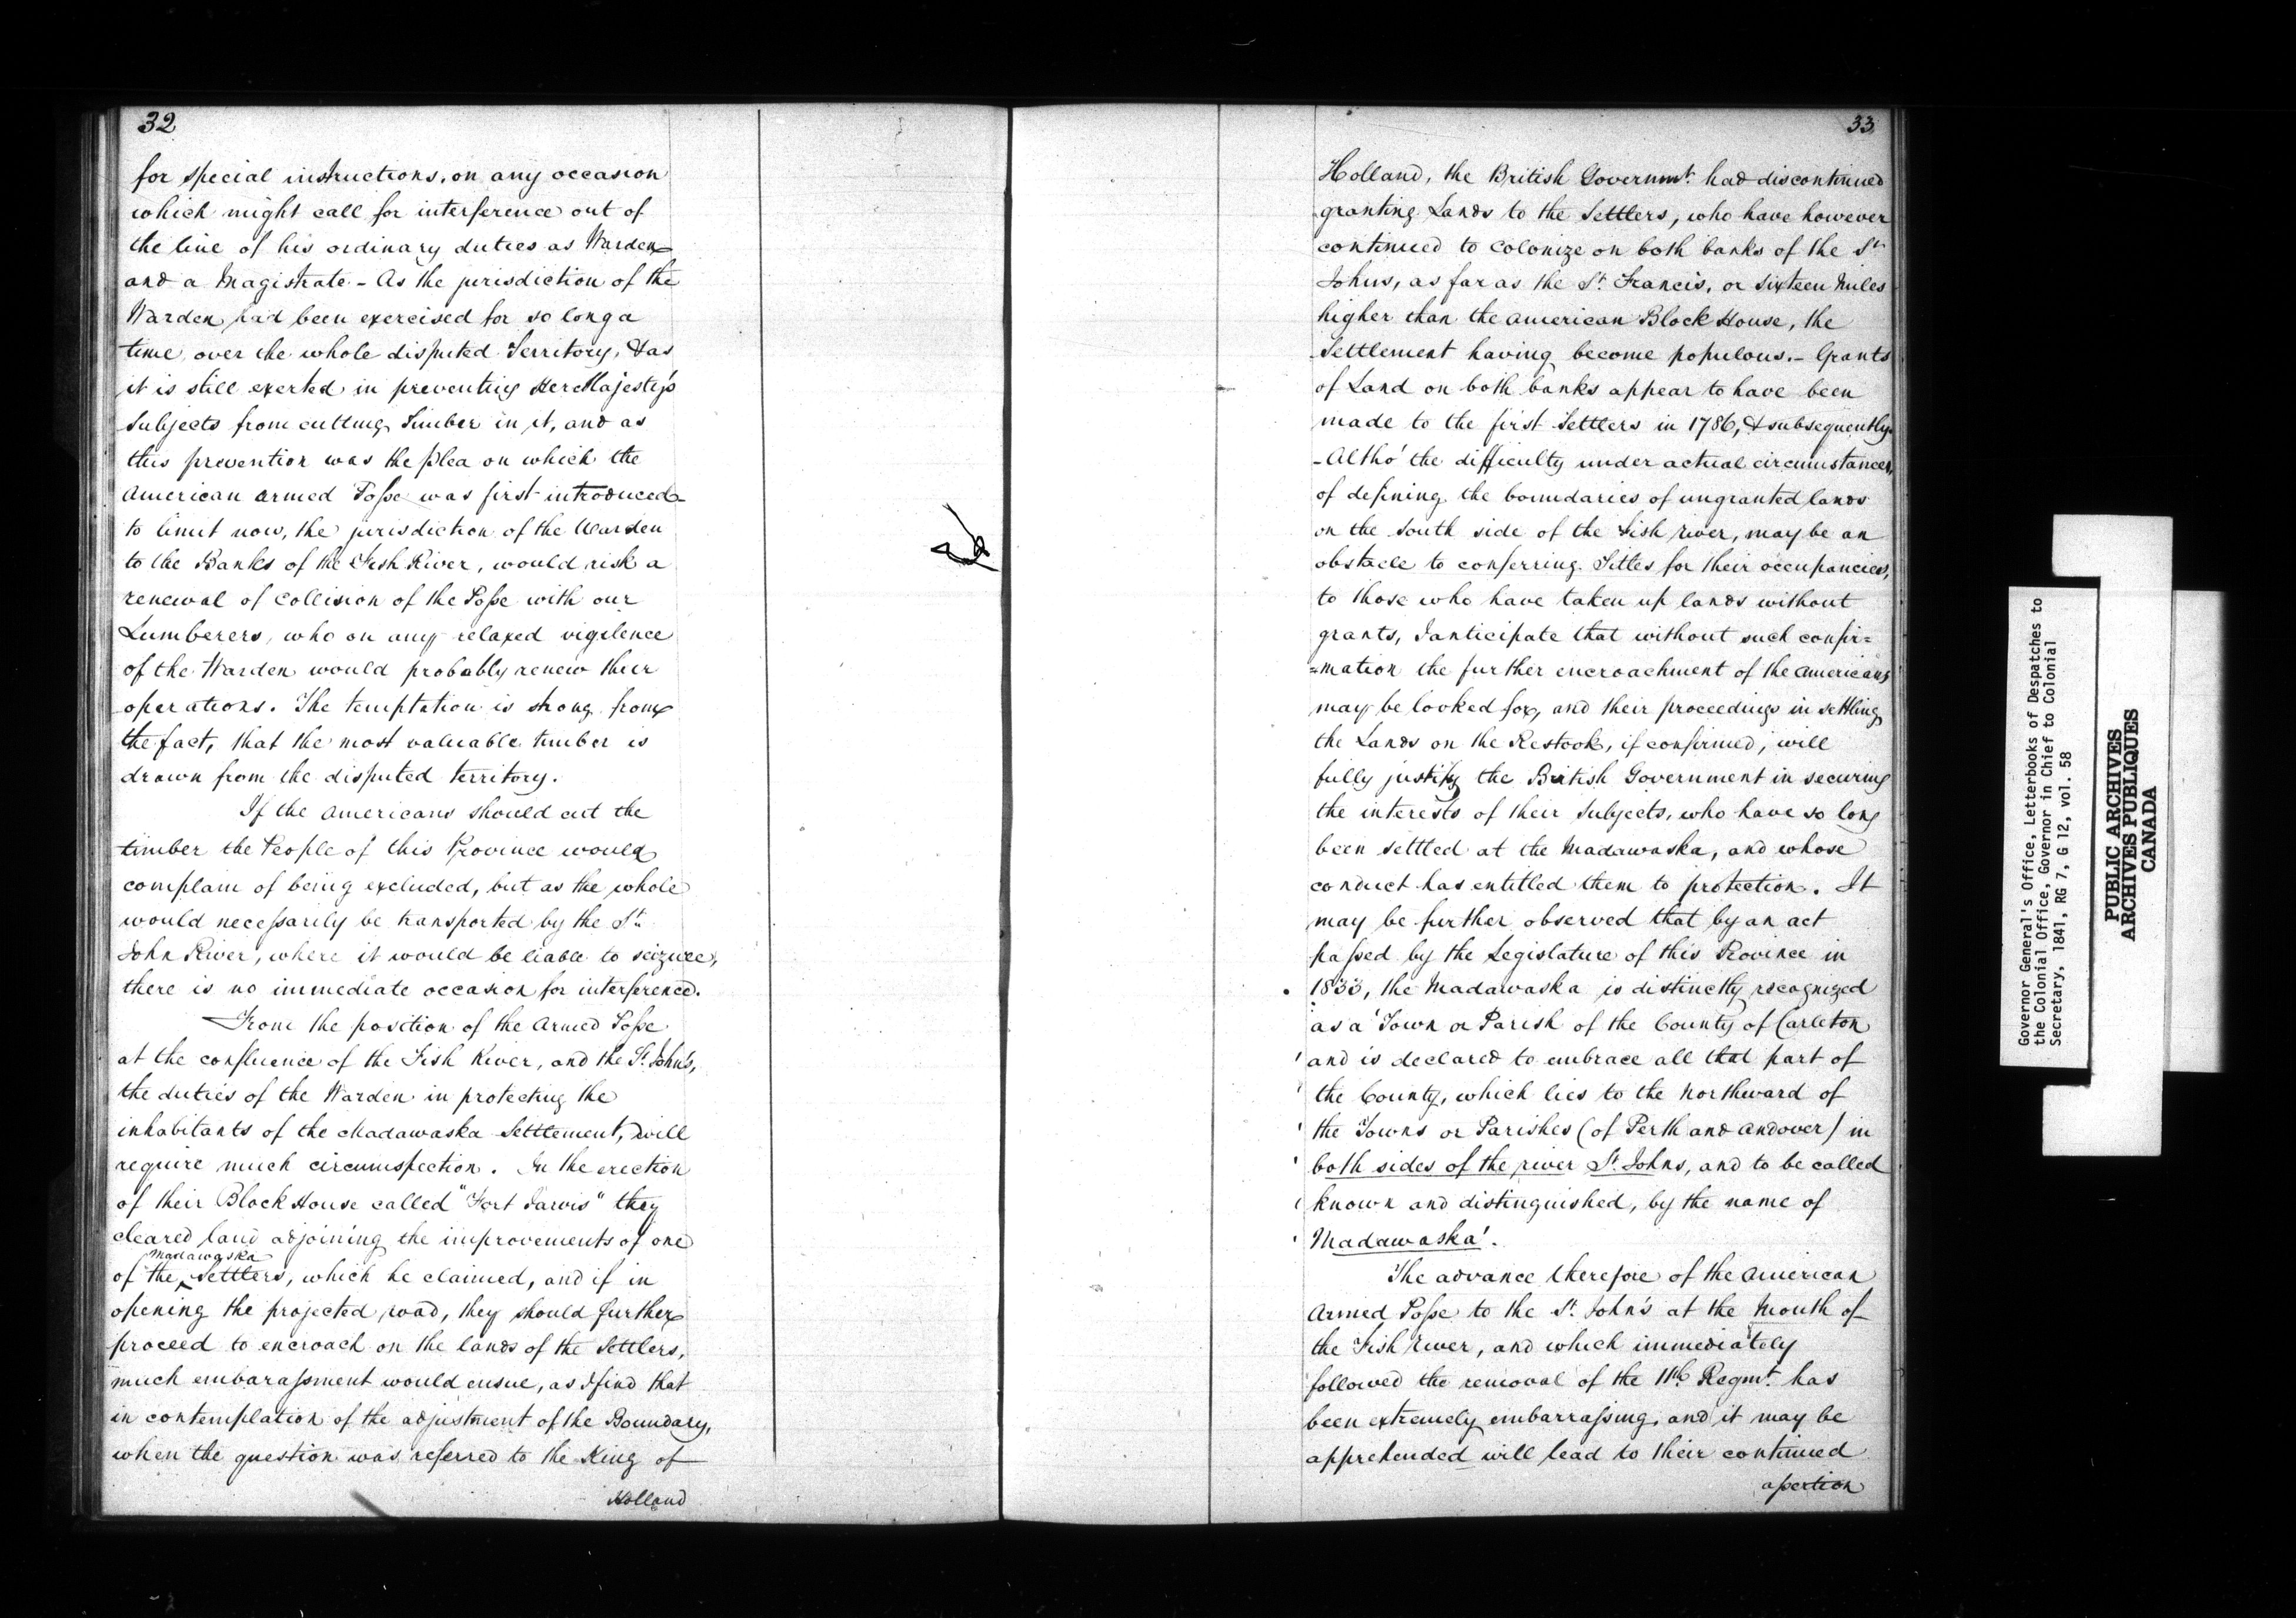 32
for special instructions, on any occasion
which might call for interference out of
the line of his ordinary duties as Warden
and a Magistrate - As the jurisdiction of the
Warden had been exercised for so long a
time over the whole disputed Territory, & as
it is still exerted in preventing Her Majesty's
Subjects from cutting Timber in it, and as
this prevention was the plea on which the
American armed Posse was first introduced
to limit now, the jurisdiction of the Warden
to the Banks of the Fish River, would risk a
renewal of Collision of the Posse with our
Lumberers, who on any relaxed vigilence
of the Warden would probably renew their
operations. The temptation is strong from
the fact, that the most valuable timber is
drawn from the disputed territory.
If the Americans should cut the
timber the People of this Province would
complain of being excluded, but as the whole
would necessarily be transported by the St.
John River, where it would be liable to seizure,
there is no immediate occasion for interference.
From the position of the Armed Posse
at the confluence of the Fish River, and the St. John's,
the duties of the Warden in protecting the
inhabitants of the Madawaska Settlement, will
require much circumspection. In the erection
of their Block House called "Fort Jarvis" they
cleared land adjoining the improvements of one
of the Madawaska Settlers, which he claimed, and if in
opening the projected road, they should further
proceed to encroach on the lands of the Settlers,
much embarassment would ensue, as I find that
in contemplation of the adjustment of the Boundary,
when the question was referred to the King of
Holland
33
Holland, the British Governmt. had discontinued
granting Lands to the Settlers, who have however
continued to Colonize on both banks of the St
Johns, as far as the St. Francis, or Sixteen Miles
higher than the American Block House, the
Settlement having become populous. - Grants
of Land on both banks appear to have been
made to the first Settlers in 1786, & subsequently.
- Altho' the difficulty under actual circumstances,
of defining the boundaries of ungranted lands
on the South side of the Fish river, may be an
obstacle to conferring Titles for their occupancies,
to those who have taken up lands without
grants, I anticipate that without such confir=
=mation the further encroachment of the Americans
may be looked for, and their proceedings in settling
the Lands on the Restook, if confirmed, will
fully justify the British Government in securing
the interests of their Subjects, who have so long
been settled at the Madawaska, and whose
conduct has entitled them to protection. It
may be further observed that by an act
passed by the Legislature of this Province in
1833, the Madawaska is distinctly recognized
as a 'Town or Parish of the County of Carleton
' and is declared to embrace all that part of
' the County, which lies to the Northward of
' the Towns or Parishes (of Perth and Andover) in
' both sides of the river St. Johns, and to be called
' known and distinguished, by the name of
' Madawaska'.
The advance therefore of the American
Armed Posse to the St. John's at the Mouth of
the Fish River, and which immediately
followed the removal of the 11th Regmt. has
been extremely embarrassing, and it may be
apprehended will lead to their continued
assertion
Governor General's Office, Letterbooks of Despatches to
the Colonial Office, Governor in Chief to Colonial
Secretary, 1841, RG 7, G 12, vol. 58
PUBLIC ARCHIVES
ARCHIVES PUBLIQUES
CANADA